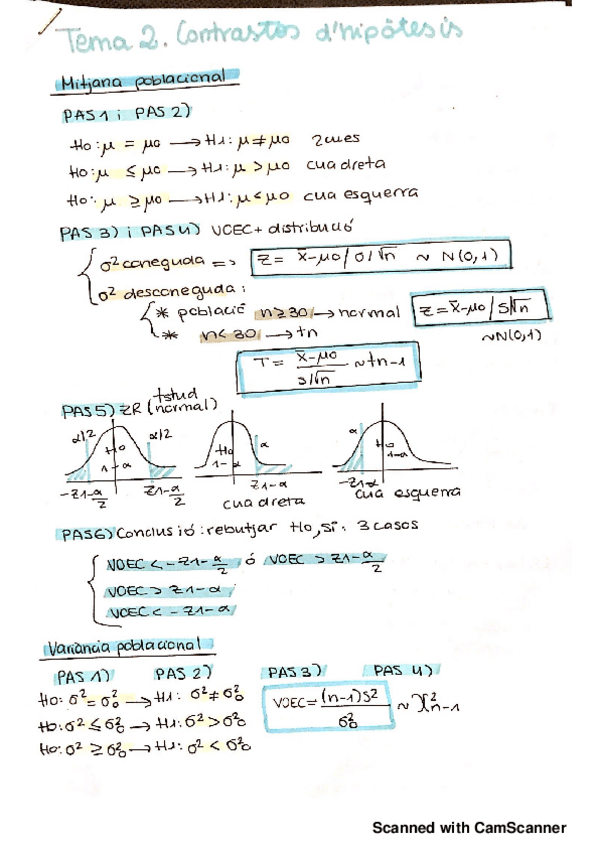 Tema 2. Contrastos d'hipòtesis
Mitjana poblacional
PAS 1 i PAS 2)
H0: μ = μ0 → H1: μ ≠ μ0 2 cues
H0: μ ≤ μ0 → H1: μ > μ0 cua dreta
H0: μ ≥ μ0 → H1: μ < μ0 cua esquerra
PAS 3) i PAS 4) VOEC + distribució
σ² coneguda => Z = x̄-μ0 / σ/√n ~ N(0,1)
σ² desconeguda:
* població n≥30 → normal Z = x̄-μ0 / S/√n
* n<30 → tn ~N(0,1)
T = x̄-μ0 / s/√n ~ tn-1
tstud
PAS 5) ZR (normal)
α/2 H0 α/2 H0 α α H0
1-α 1-α 1-α
-Z1-α/2 Z1-α/2 Z1-α -Z1-α
cua dreta cua esquerra
PAS 6) Conclusió: rebutjar H0, si: 3 casos
VOEC < -Z1-α/2 ó VOEC > Z1-α/2
VOEC > Z1-α
VOEC < -Z1-α
Variància poblacional
PAS 1) PAS 2) PAS 3) PAS 4)
H0: σ² = σ²0 → H1: σ² ≠ σ²0 VOEC = (n-1)S² / σ²0 ~ χ²n-1
H0: σ² ≤ σ²0 → H1: σ² > σ²0
H0: σ² ≥ σ²0 → H1: σ² < σ²0
Scanned with CamScanner